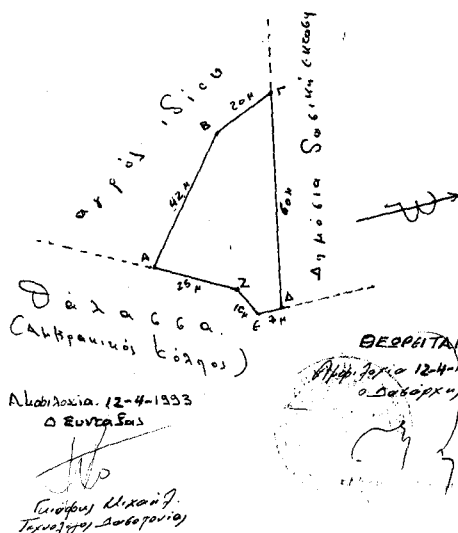 αγρός ιδίου
Δημόσια δασική έκταση
Γ
20μ
Β
42μ
60μ
Α
25μ
Ζ
10μ
Ε
7μ
Δ
Θάλασσα.
(Αμβρακικός κόλπος)
Αμφιλοχία 12-4-1993
Ο Συντάξας
Μιχαήλ
Τεχνολόγος Δασοπονίας
ΘΕΩΡΕΙΤΑΙ
Αμφιλοχία 12-4-1
Ο Δασάρχης